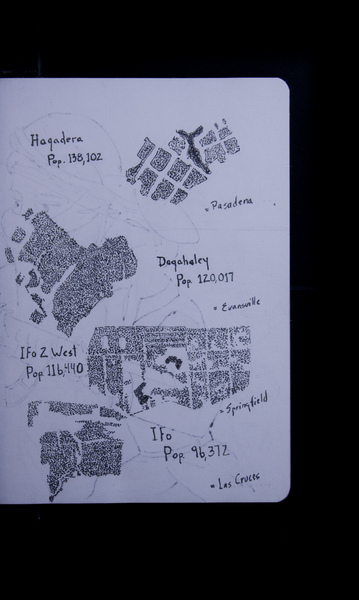 Hagadera
Pop. 138,102
= Pasadena
Dagahaley
Pop. 120,017
= Evansville
IFO 2 West
Pop. 116,440
= Springfield
IFO
Pop. 96,372
= Las Cruces